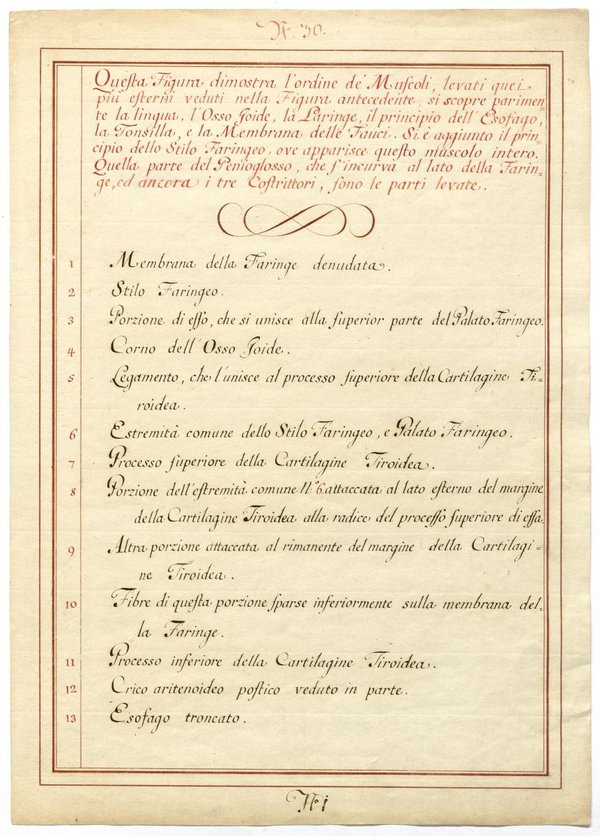 Nº. 30.
Questa Figura dimostra l'ordine de' Muscoli, levati quei
più esterni veduti nella Figura antecedente, si scopre parimen-
te la lingua, l'Osso Joide, la Laringe, il principio dell'Esofago,
la Tonsilla, e la Membrana delle Fauci. Si è aggiunto il prin-
cipio dello Stilo Faringeo, ove apparisce questo muscolo intero.
Quella parte del Genioglosso, che s'incurva al lato della Farin-
ge, ed ancora i tre Costrittori, sono le parti levate.
1 Membrana della Faringe denudata.
2 Stilo Faringeo.
3 Porzione di esso, che si unisce alla superior parte del Palato Faringeo.
4 Corno dell'Osso Joide.
5 Legamento, che l'unisce al processo superiore della Cartilagine Ti-
roidea.
6 Estremità comune dello Stilo Faringeo, e Palato Faringeo.
7 Processo superiore della Cartilagine Tiroidea.
8 Porzione dell'estremità comune Nº. 6. attaccata al lato esterno del margine
della Cartilagine Tiroidea alla radice del processo superiore di essa.
9 Altra porzione attaccata al rimanente del margine della Cartilagi-
ne Tiroidea.
10 Fibre di questa porzione sparse inferiormente sulla membrana del-
la Faringe.
11 Processo inferiore della Cartilagine Tiroidea.
12 Crico aritenoideo postico veduto in parte.
13 Esofago troncato.
Nº 1